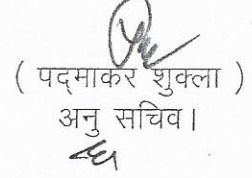 ( पद्माकर शुक्ला )
अनु सचिव।